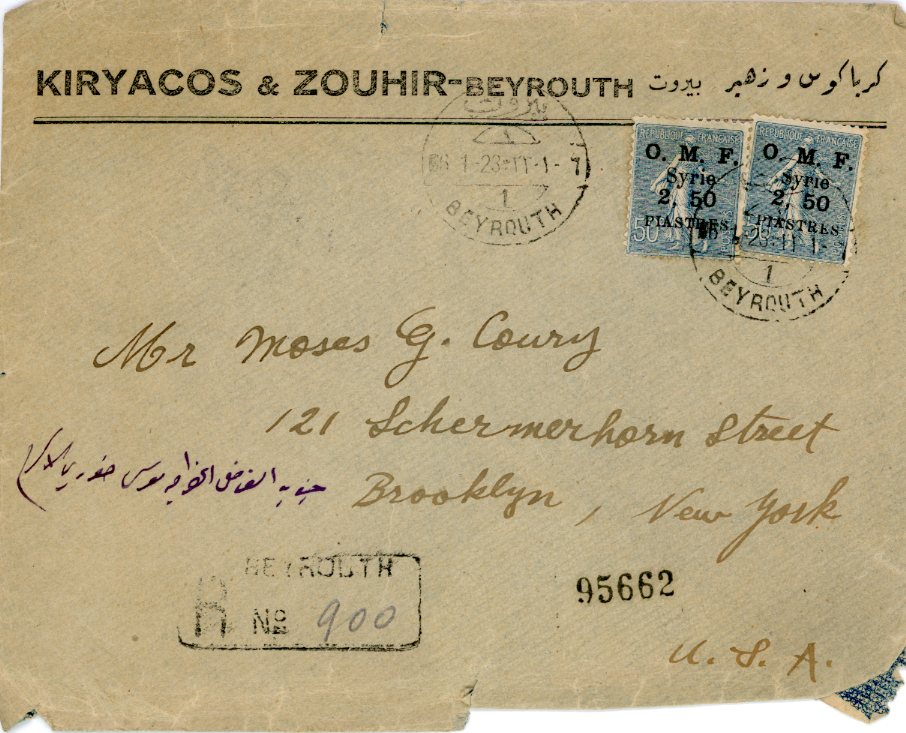 KIRYACOS & ZOUHIR-BEYROUTH كرياكوس و زهير بيروت
بيروت
1-23·11-1- 7
1
BEYROUTH
REPUBLIQUE FRANÇAISE
O. M. F.
Syrie
2, 50
PIASTRES
50
REPUBLIQUE FRANÇAISE
O. M. F.
Syrie
2, 50
PIASTRES
-23·11 1-
1
BEYROUTH
Mr Moses G. Coury
121 Schermerhorn Street
Brooklyn, New York
موسى خوري
BEYROUTH
R No 900
95662
U. S. A.